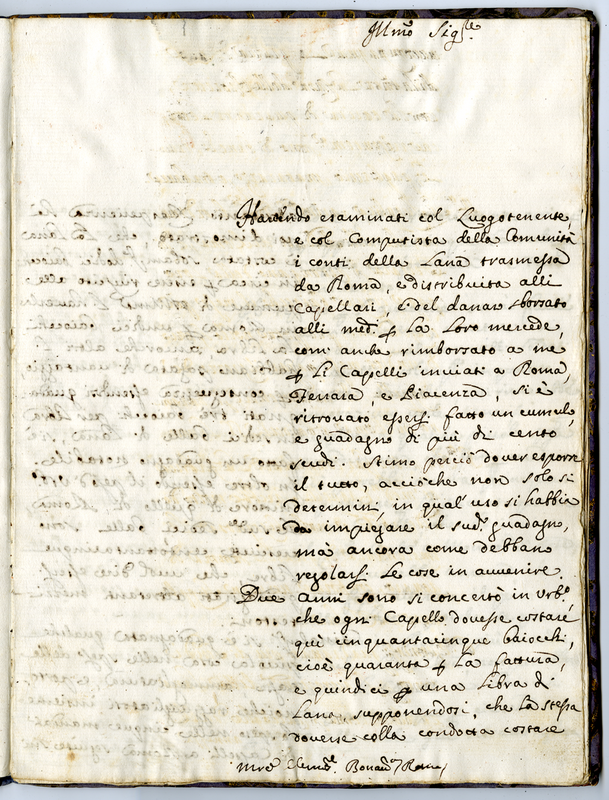 Illmo Sigre
Havendo esaminati col Luogotenente
e col Computista della Comunità
i conti della Lana trasmessa
da Roma, e distribuita alli
Capellari, e del danaro sborsato
alli med. p la loro mercede,
com' anche rimborsato a me
p li Capelli inviati a Roma,
Ferrara, e Piacenza, si è
ritrovato essersi fatto un cumulo,
e guadagno di più di cento
scudi. Stimo perciò dover esporre
il tutto, acciòche non solo si
determini, in qual' uso si habbia
da impiegare il sud. guadagno,
mà ancora come debbano
regolarsi le cose in avvenire.
Due anni sono si concertò in Urbo,
che ogni Capello dovesse costare
quì cinquantacinque baiocchi,
cioè quaranta p la fattura,
e quindici p una libra di
Lana, supponendosi, che la stessa
dovesse colla condotta costare
Roma